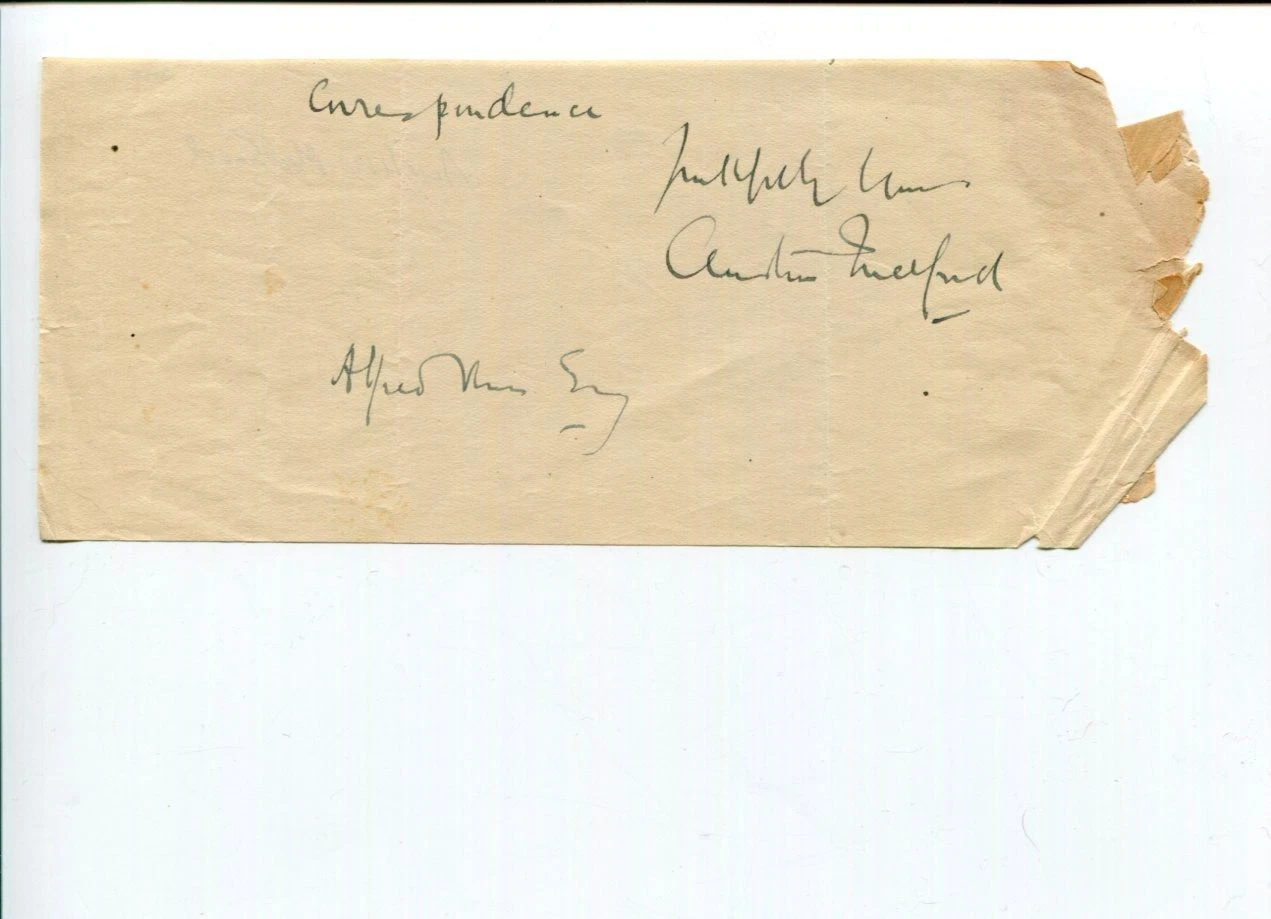 Correspondence
Faithfully Yours
Austin Melford
Alfred Esq